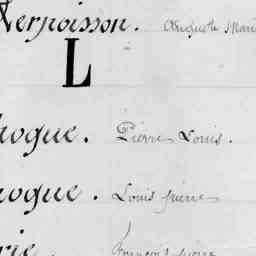 Kerpoisson. Auguste Marie
L
rogue. Pierre Louis.
rogue. Louis pierre
rie François pierre